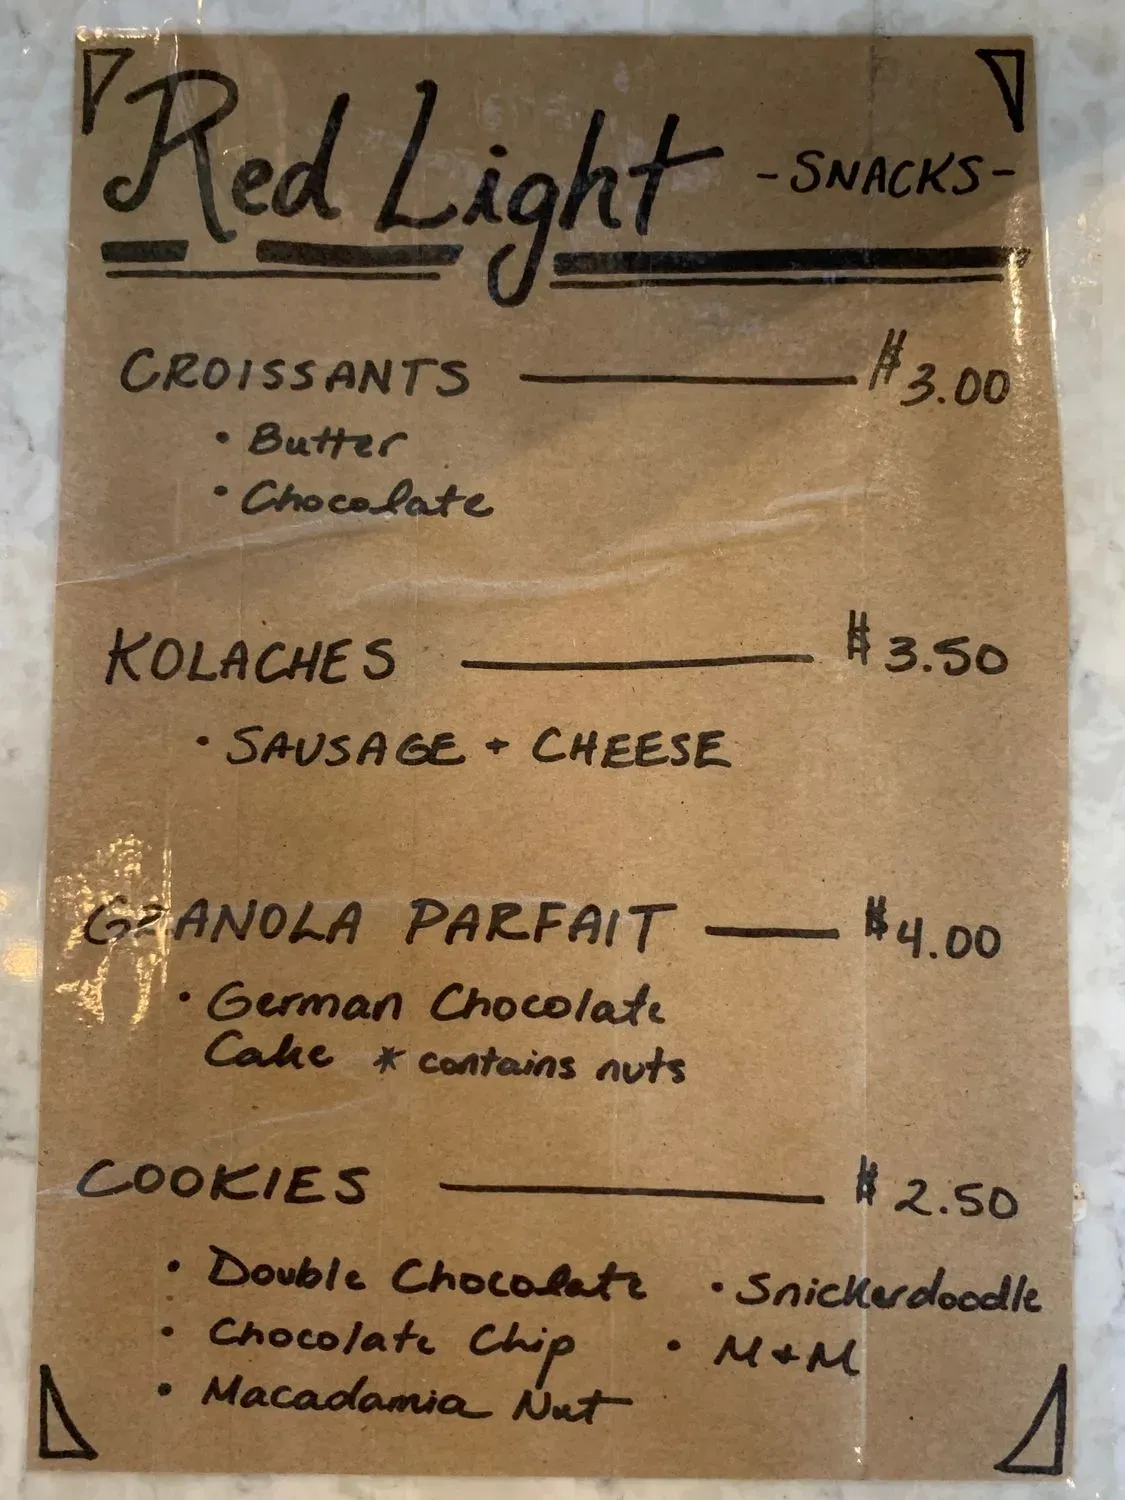 Red Light -SNACKS-
CROISSANTS $3.00
• Butter
• Chocolate
KOLACHES $3.50
• SAUSAGE + CHEESE
GRANOLA PARFAIT $4.00
• German Chocolate
Cake * contains nuts
COOKIES $2.50
• Double Chocolate • Snickerdoodle
• Chocolate Chip • M+M
• Macadamia Nut